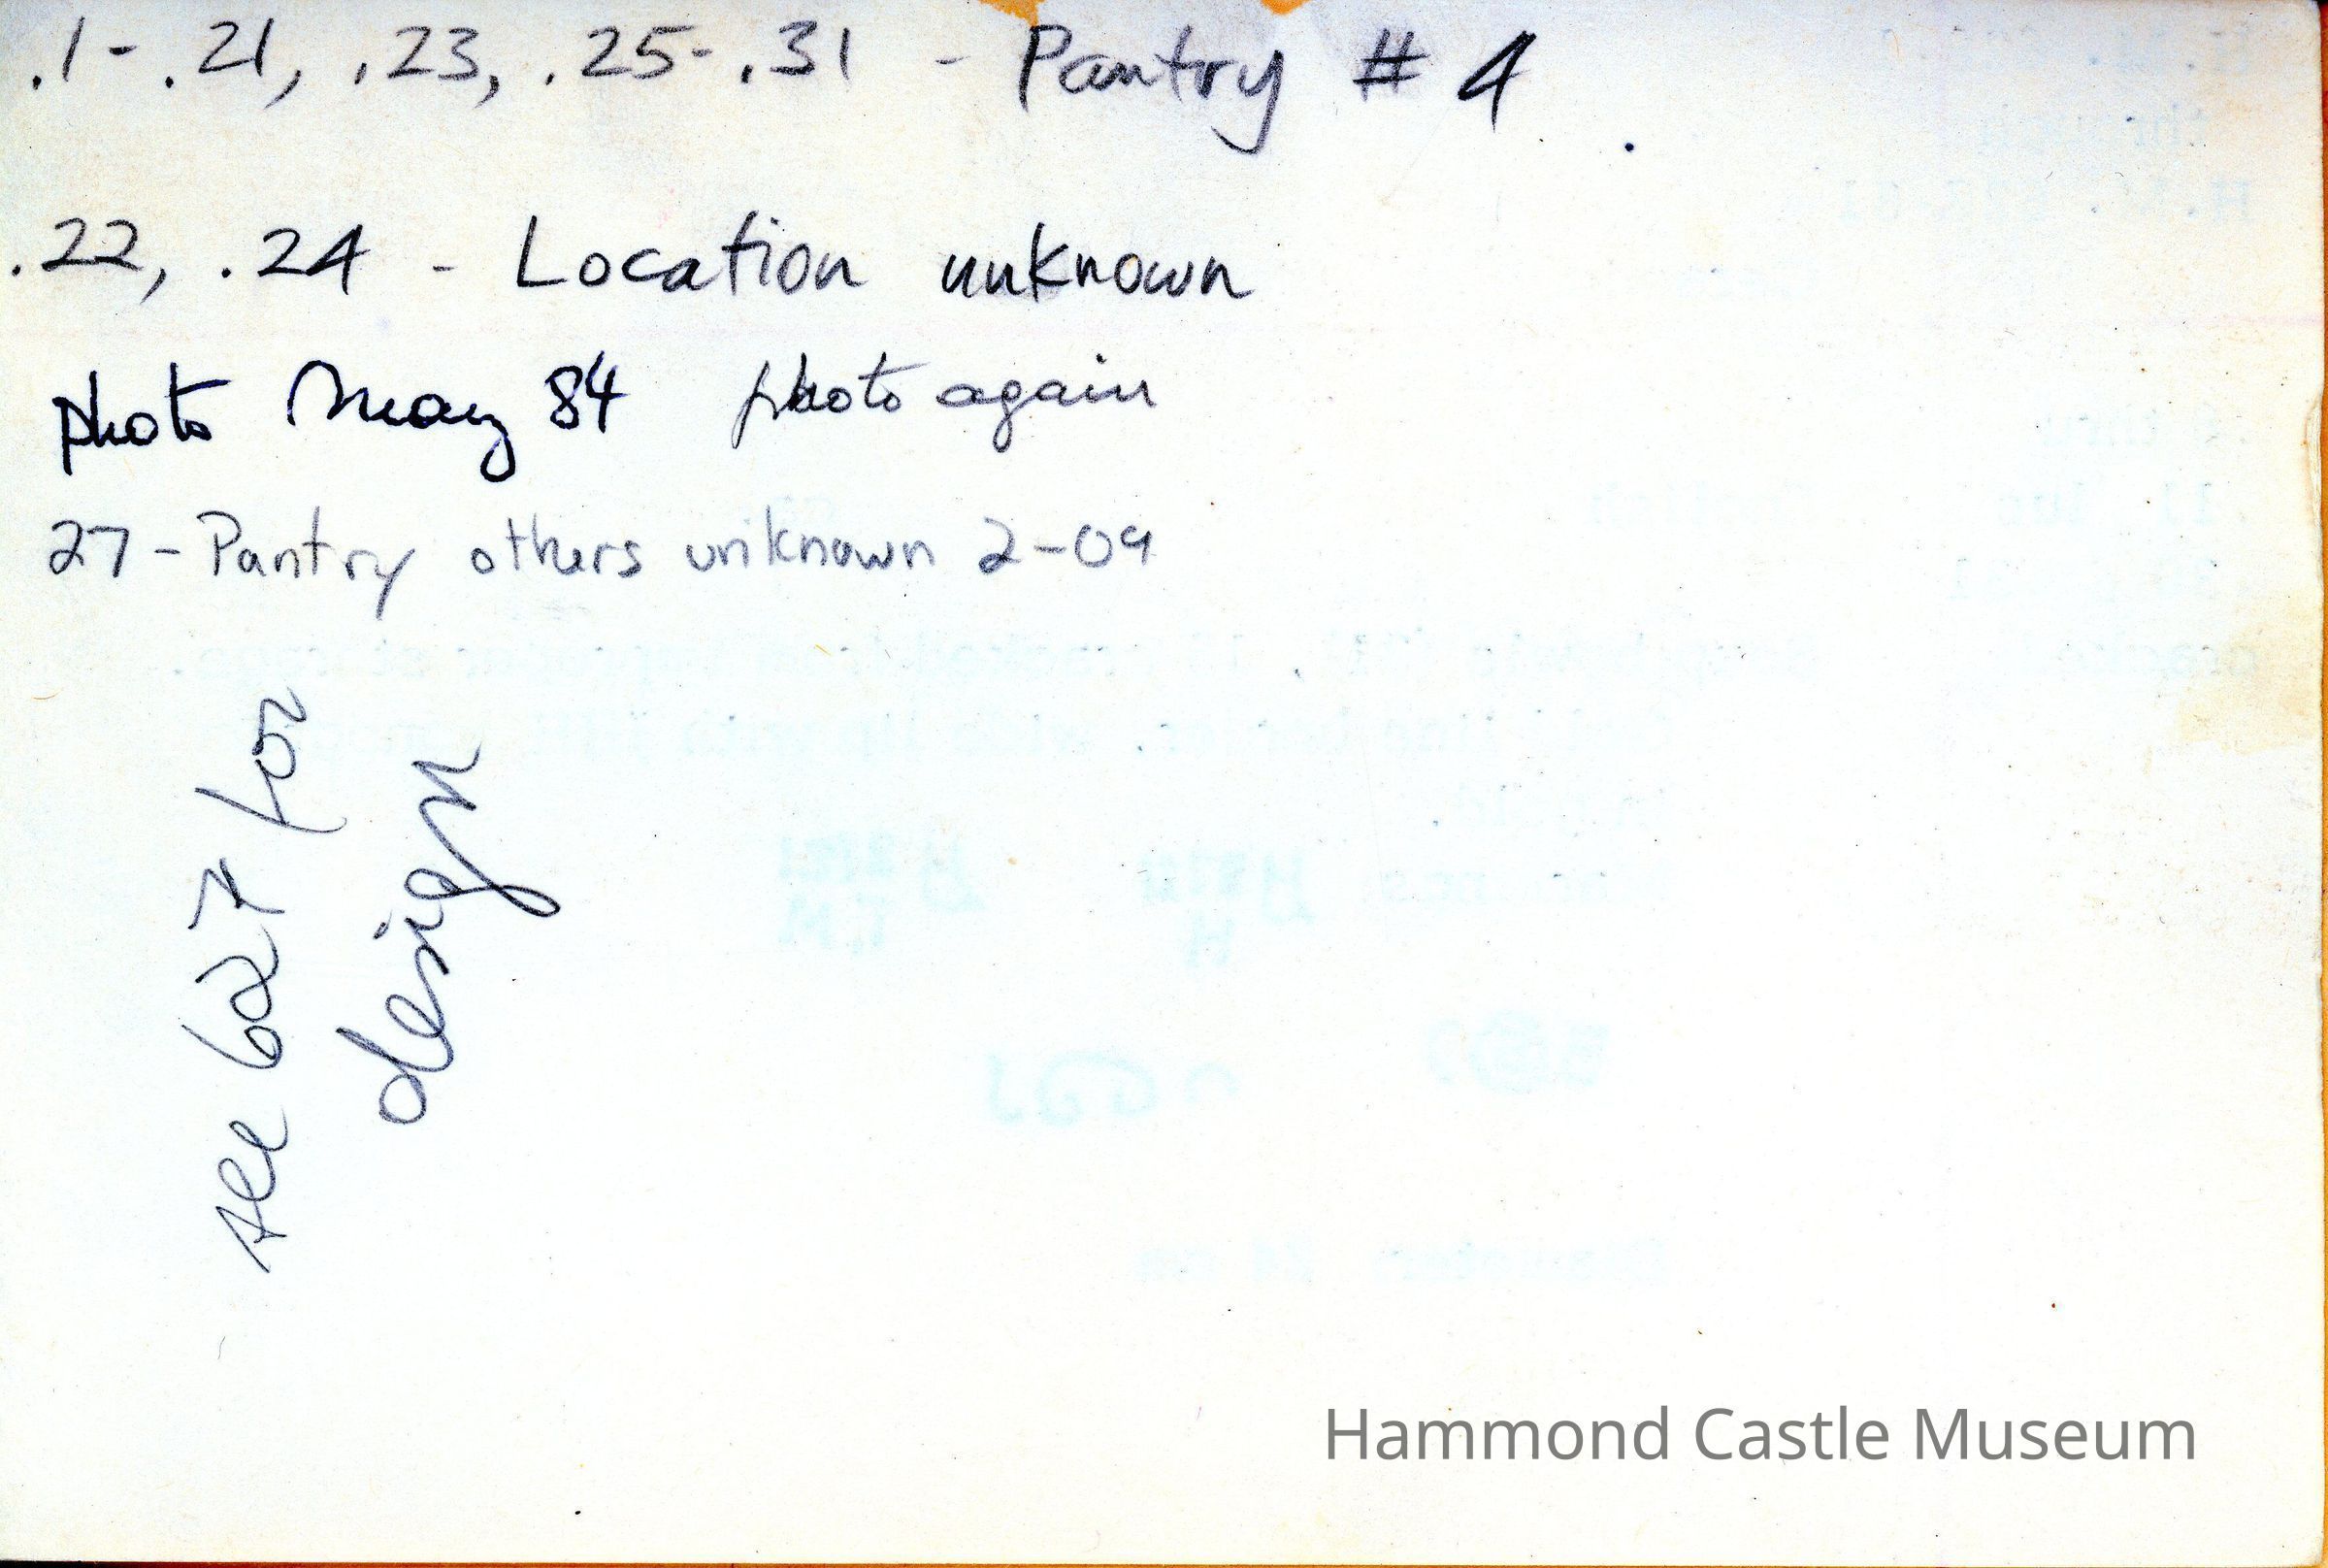 .1 - .21, .23, .25 - .31 - Pantry # 4
.22, .24 - Location unknown
photo May 84 photo again
27 - Pantry others unknown 2-09
see 627 for
design
Hammond Castle Museum